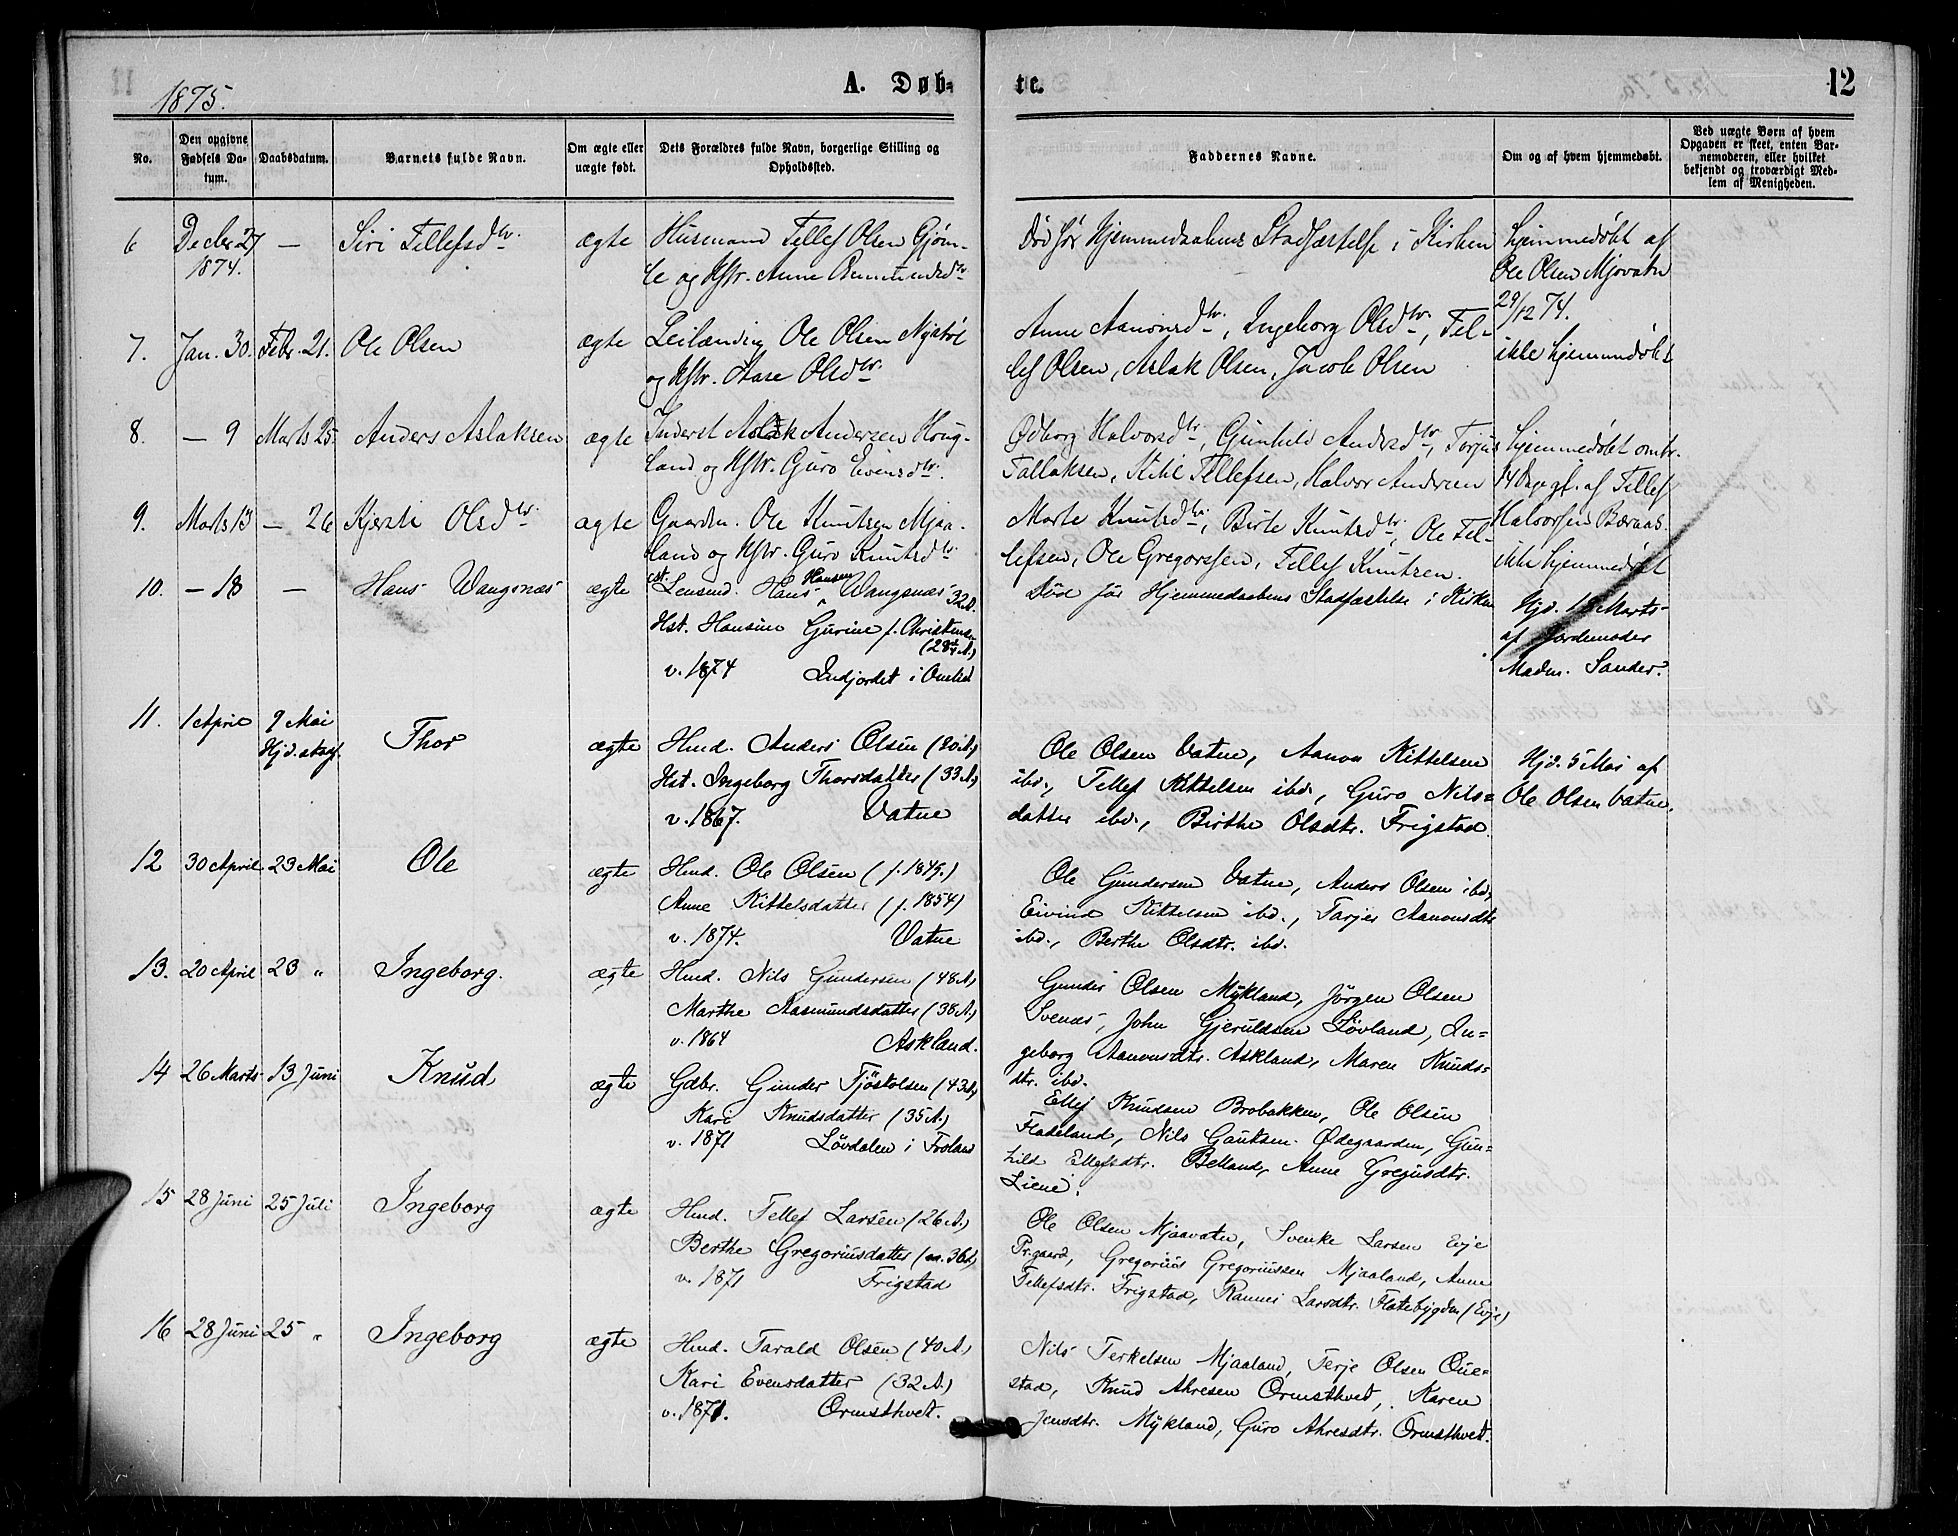 1875.
A. Døb-
te.
12
No.
Den opgivne Fødsels Da-
tum.
Daabsdatum.
Barnets fulde Navn.
Om ægte eller
uægte født.
Dets Forældres fulde Navn, borgerlige Stilling og
Opholdssted.
Faddernes Navne.
Om og af hvem hjemmedøbt.
Ved uægte Børn af hvem
Opgaven er skeet, enten Bar-
nemoderen, eller hvilket
bekjendt og troværdigt Med-
lem af Menigheden.
6
Decber 27
1874.
—
Siri Tellefsdtr.
ægte
Husmand Tellef Olsen Gjøm-
le og Hstr. Anne
Død før Hjemmedaabens Stadfæstelse i Kirken
hjemmedøbt af
Ole Olsen Mjovatn
29/12 74.
7.
Jan. 30.
Febr. 21.
Ole Olsen
ægte
Leilænding Ole Olsen
og Hstr. Aase Olsdtr.
Anne Aanonsdtr., Ingeborg Olsdtr., Tel-
lef Olsen, Aslak Olsen, Jacob Olsen
ikke hjemmedøbt
8.
— 9
Marts 25
Anders Aslaksen
ægte
Inderst Aslak Andersen Houg-
land og Hstr. Guro Evensdtr.
Ødborg Halvorsdtr., Gunhild Andersdtr., Terjus
Tallaksen, Kittil Tellefsen, Halvor Andersen
hjemmedøbt omtr.
14 Dage gl. af Tellef
Halvorsen Beraas.
9.
Marts 13
— 26
Kjersti Olsdtr.
ægte
Gaardm. Ole Knutsen Mjaa-
land og Hstr. Guro Knutsdtr.
Marte Knutsdtr., Birte Knutsdtr., Ole Tel-
lefsen, Ole Gregorssen, Tellef Knutsen.
ikke hjemmedøbt
10.
— 18
—
Hans Wangsnæs
ægte
cst. Lensmd. Hans Hansen Wangsnæs 32 A.
Hst. Hansine Gurine f. Christensen
(28 A.)
v. 1874 Indjordet i Omlid
Død før Hjemmedaabens Stadfæstelse i Kirken
Hjd. 18 Marts
af Jordemoder
Madm. Sander.
11.
1 April
9 Mai
Hjd. stadf.
Thor
ægte
Hmd. Anders Olsen (20 A)
Hst. Ingeborg Thorsdatter (33 A)
v. 1867. Vatne
Ole Olsen Vatne, Aanon Kittelsen
ibd., Tellef Kittelsen ibd., Guro Nils=
datter ibd., Birthe Olsdtr. Frigstad.
Hjd. 5 Mai af
Ole Olsen Vatne.
12
30 April
23 Mai
Ole
ægte
Hmd. Ole Olsen (f. 1849.)
Anne Kittelsdatter (f. 1854)
v. 1874. Vatne
Ole Gundersen Vatne, Anders Olsen ibd,
Eivind Kittelsen ibd., Tarjer Aanonsdtr
ibd., Berthe Olsdtr. ibd.
13.
20 April
23 "
Ingeborg.
ægte
Hmd. Nils Gundersen (48 A)
Marthe Aasmundsdatter (38 A.)
v. 1864 Askland.
Gunder Olsen Mykland, Jørgen Olsen
Svenæs, John Gjeruldsen Løvland, In=
geborg Aanonsdtr. Askland, Maren Knuds=
dtr. ibd.
14
26 Marts
13 Juni
Knud
ægte
Gdbr. Gunder Tjöstolsen (43 A)
Kari Knudsdatter (35 A.)
v. 1871 Løvdalen i Froland
Ellef Knudsen Brobakken, Ole Olsen
Fladeland, Nils Gautsen Ødegaarden, Gun=
hild Ellefsdtr. Belland, Anne Gregusdtr.
Liene.
15
28 Juni
25 Juli
Ingeborg
ægte
Hmd. Tellef Larsen (26 A.)
Berthe Gregoriusdatter (36 A)
v. 1871 Frigstad
Ole Olsen Mjaavatn, Svenke Larsen Evje
Prgaard, Gregorius Gregoriussen Mjaaland, Anne
Tellefsdtr. Frigstad, Rannei Larsdtr. Flatebygden (Evje)
16
28 Juni
25 "
Ingeborg
ægte
Hmd. Tarald Olsen (40 A)
Kari Evensdatter (32 A.)
v. 1871. Ormsthvet.
Nils Terkelsen Mjaaland, Terje Olsen Que=
stad, Knud Akresen Ormsthvet, Karen
Jensdtr. Mykland, Guro Akresdtr. Ormsthvet.